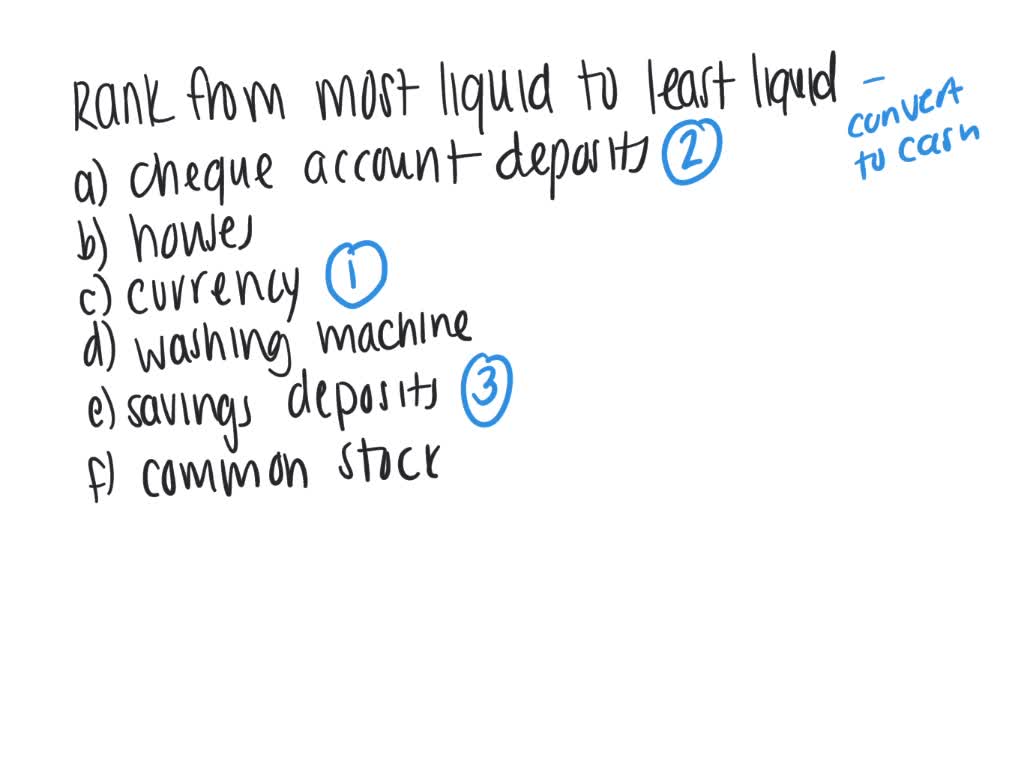 Rank from most liquid to least liquid -
convert
to cash
a) cheque account deposits ②
b) houses
c) currency ①
d) washing machine
e) savings deposits ③
f) common stock